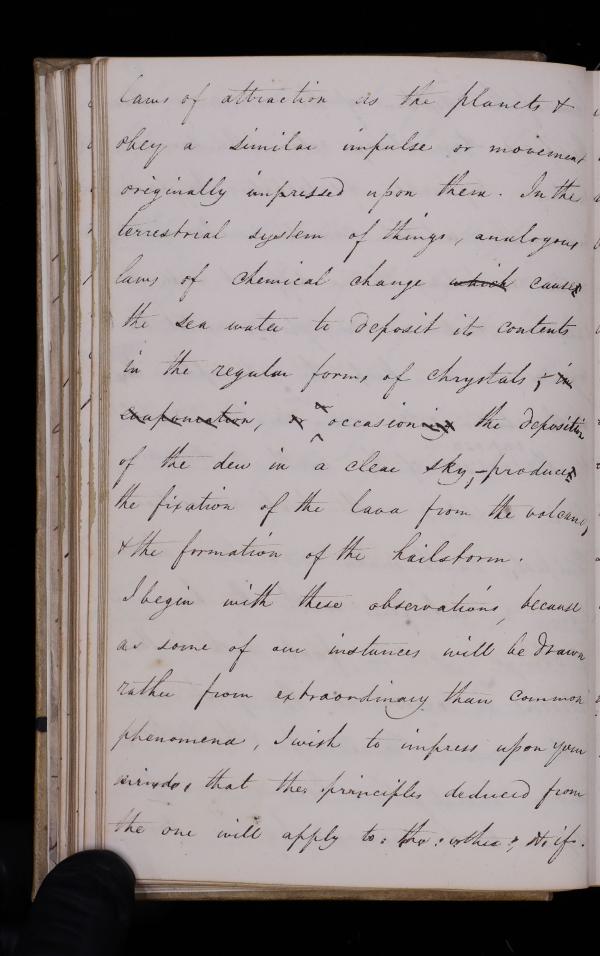 laws of attraction as the planets &
obey a similar impulse or movement
originally impressed upon them. In the
terrestrial system of things, analogous
laws of chemical change which cause
the sea water to deposit its contents
in the regular forms of chrystals; in
evaporation, occasion the deposition
of the dew in a clear sky, – produce
the fixation of the lava from the volcano,
& the formation of the hailstorm.
I begin with these observations, because
as some of our instances will be drawn
rather from extraordinary than common
phenomena, I wish to impress upon your
minds, that the principles deduced from
the one will apply to the other; & if